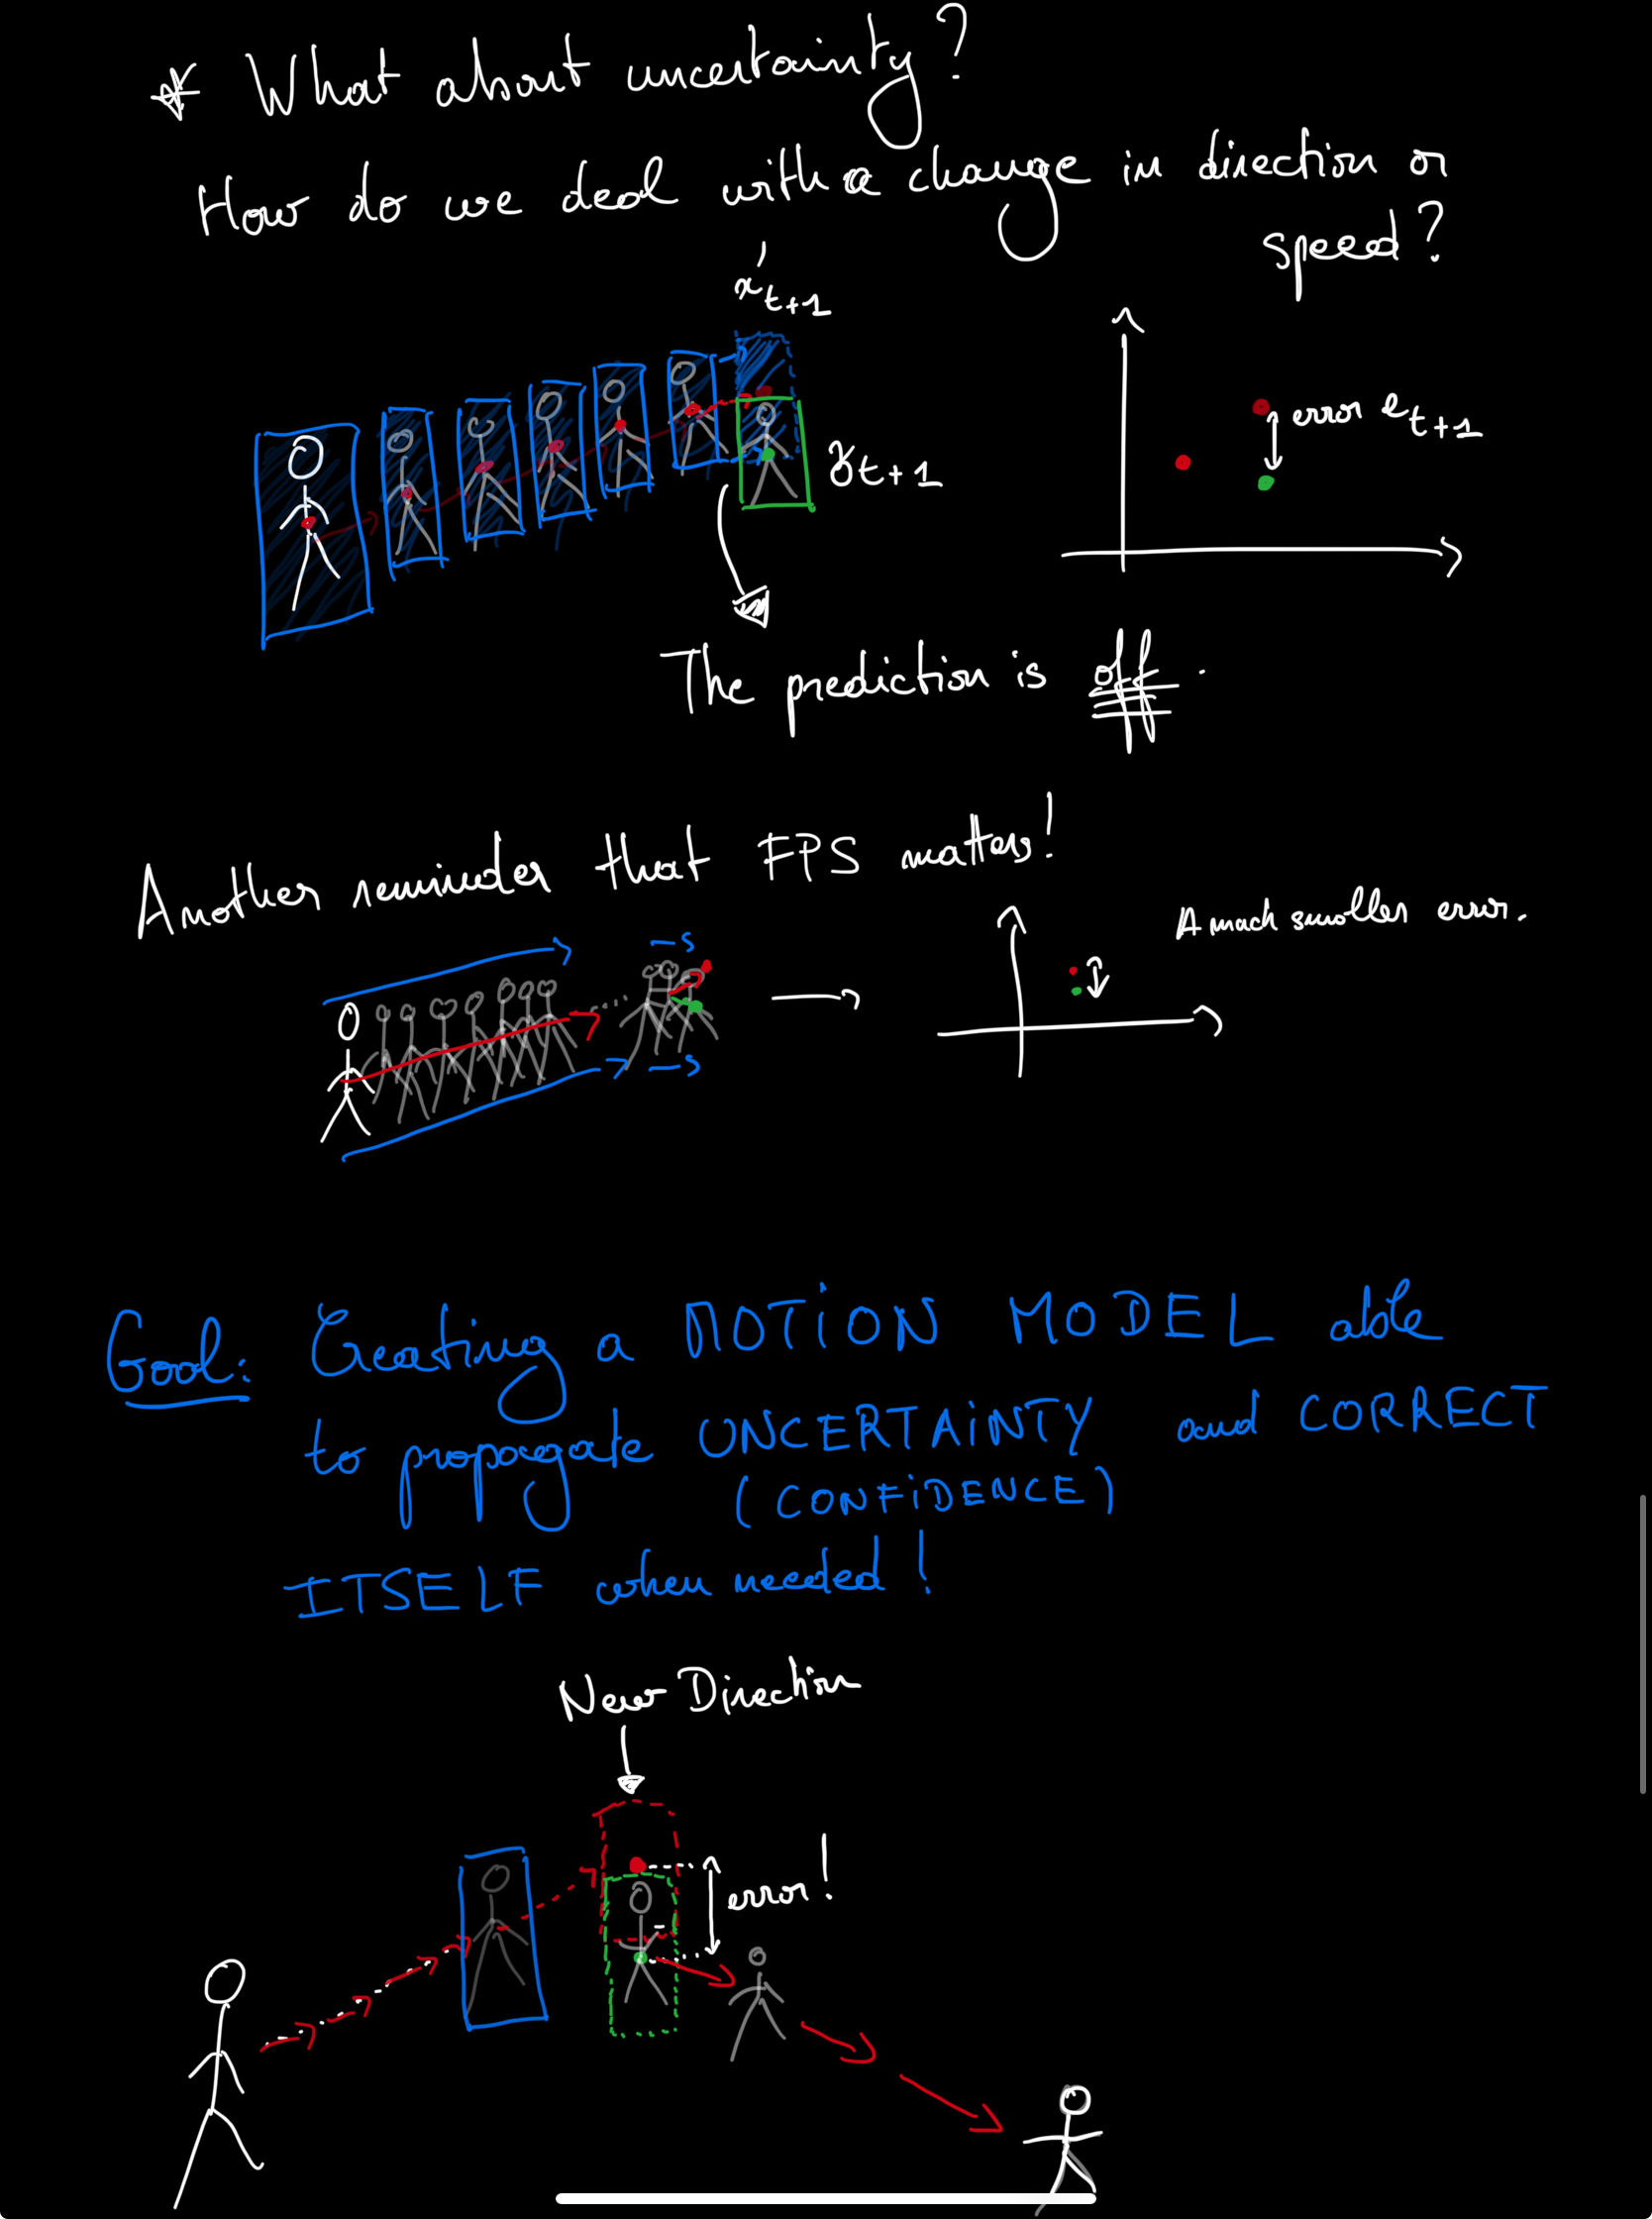 * What about uncertainty?
How do we deal with a change in direction or
speed?
x't+1
error et+1
zt+1
The prediction is off.
Another reminder that FPS matters!
A much smaller error.
Goal: Creating a MOTION MODEL able
to propagate UNCERTAINTY and CORRECT
(CONFIDENCE)
ITSELF when needed!
New Direction
error!